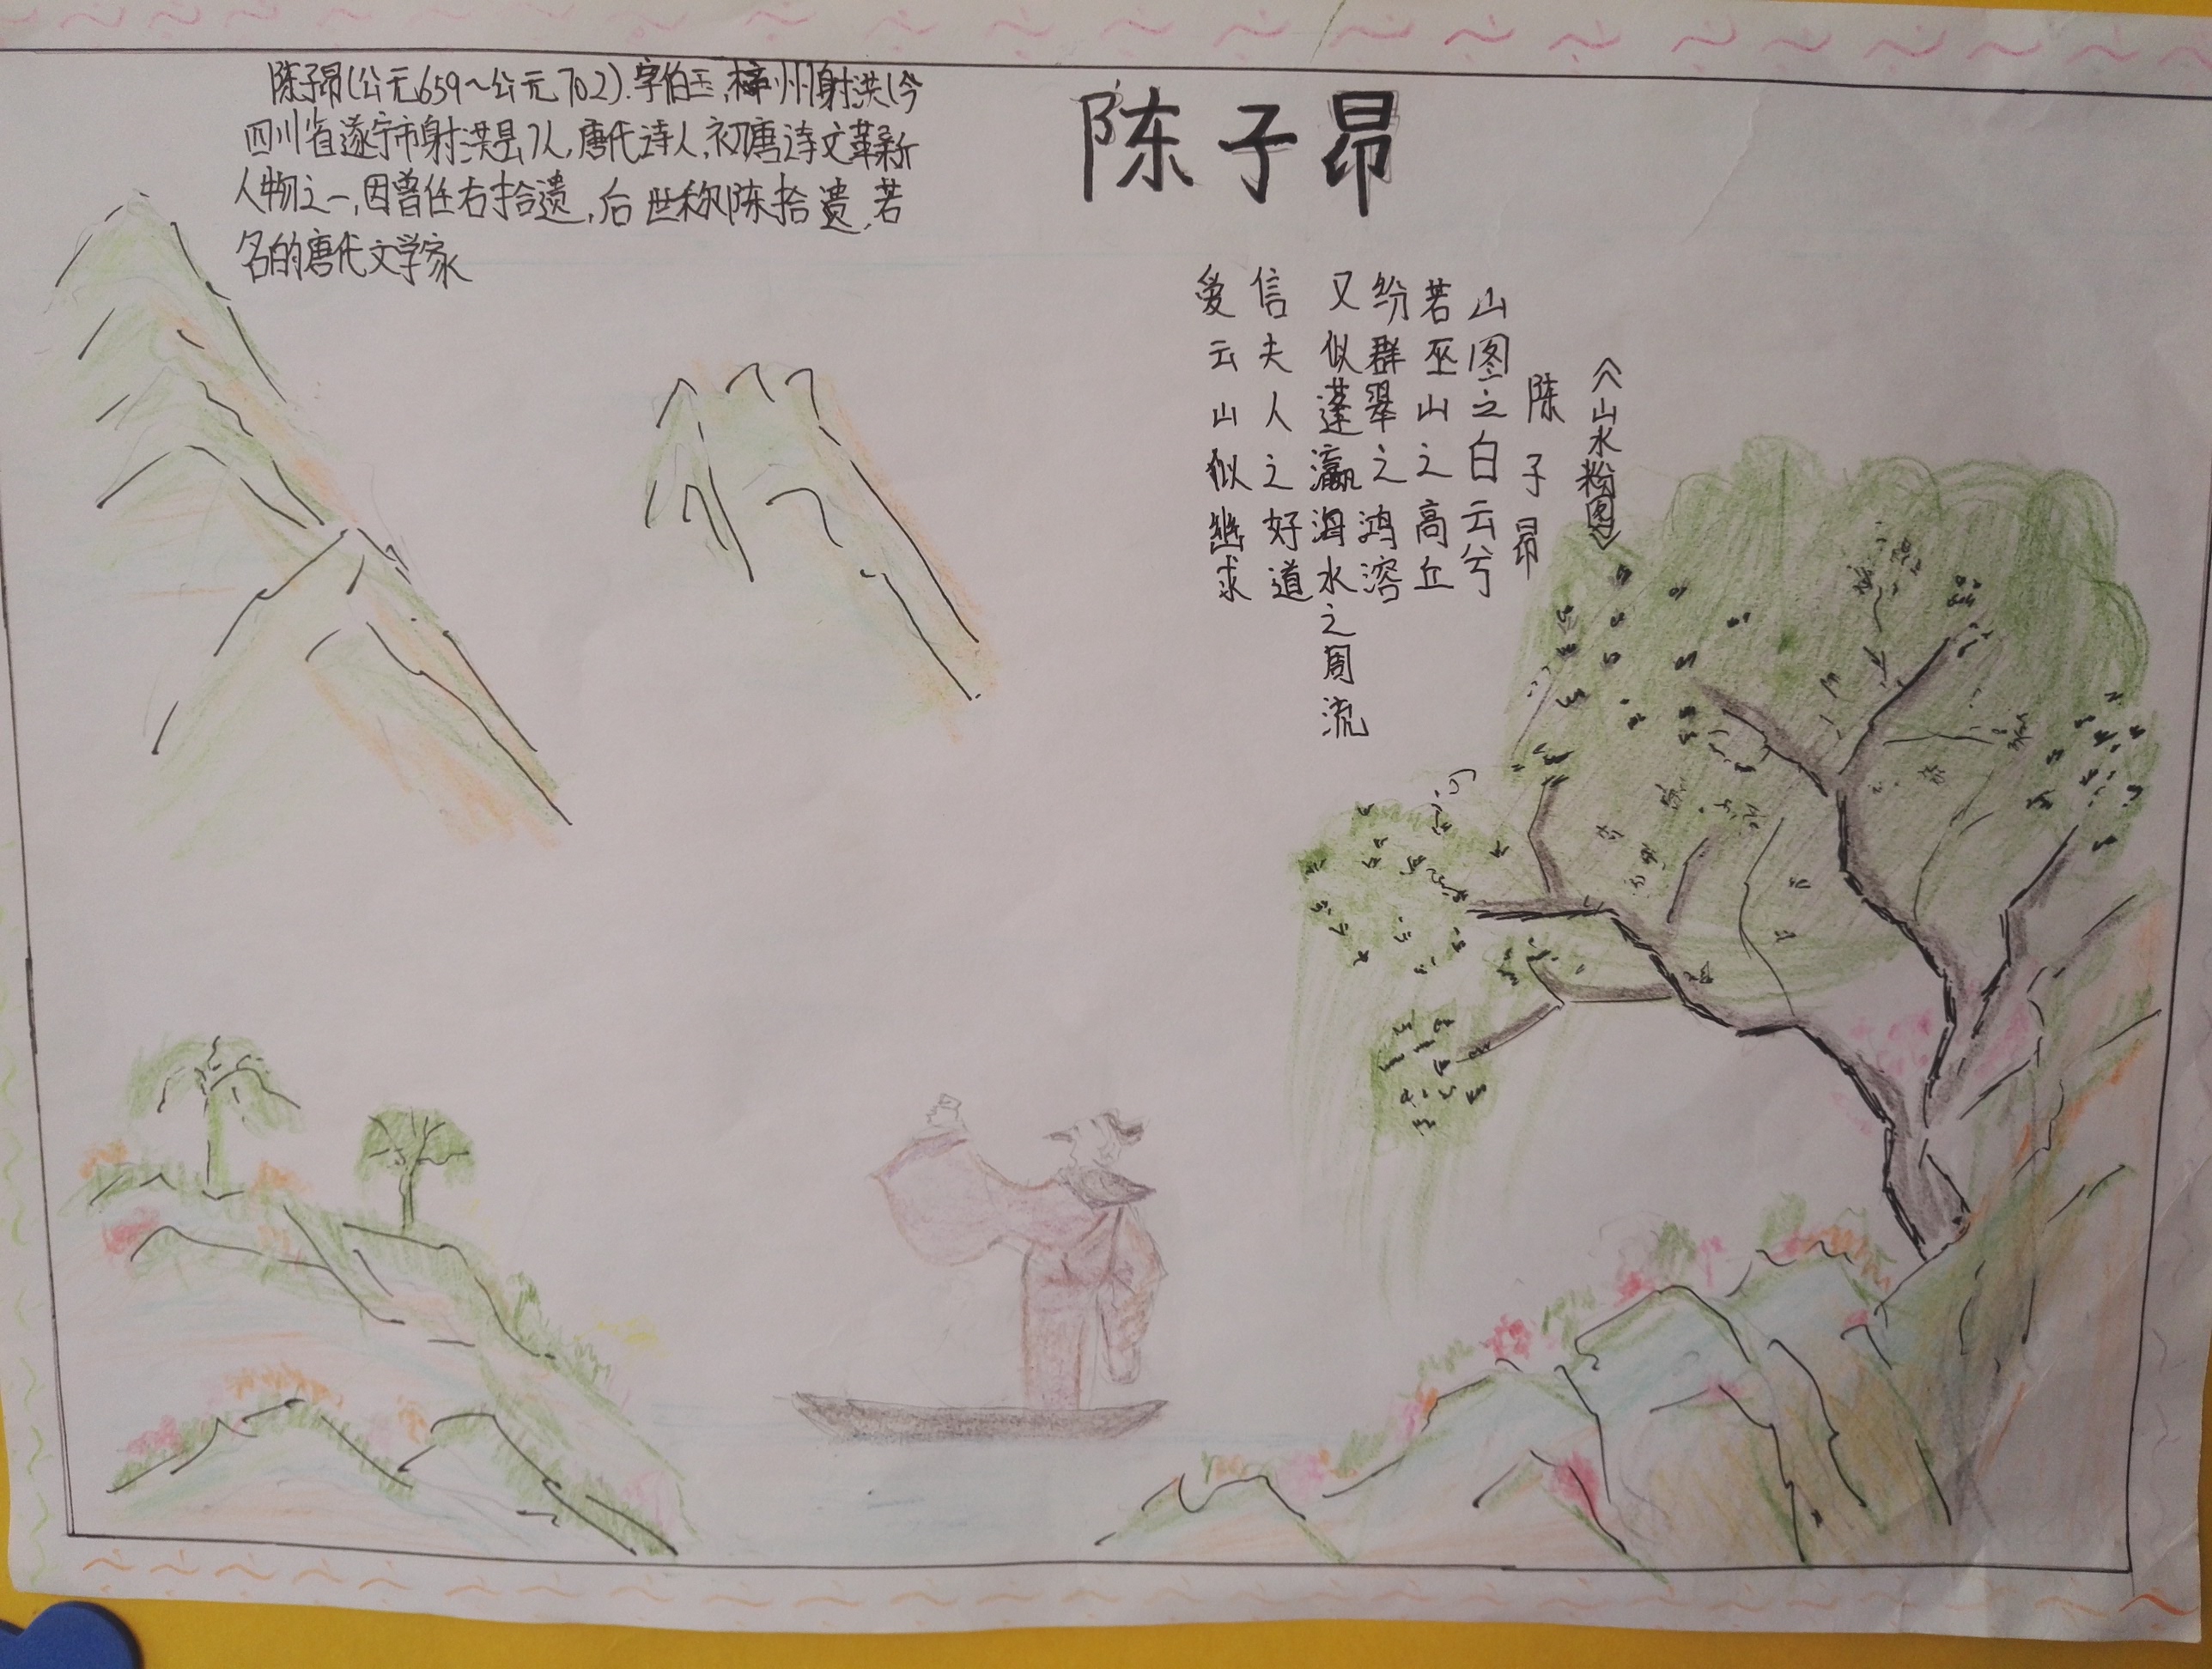 陈子昂(公元659~公元702).字伯玉,梓州射洪(今
四川省遂宁市射洪县)人,唐代诗人,初唐诗文革新
人物之一,因曾任右拾遗,后世称陈拾遗,若
名的唐代文学家
陈子昂
《山水粉图》
陈子昂
山图之白云兮
若巫山之高丘
纷群翠之鸿溶
又似蓬瀛海水之周流
信夫人之好道
爱云山似幽求